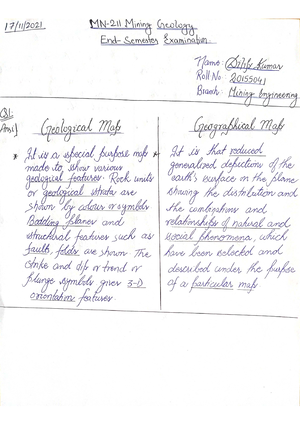 17/11/2021
MN-211 Mining Geology
End-Semester Examination.
Name: Dilip Kumar
Roll No: 20155041
Branch: Mining Engineering
Q1.
Ans)
Geological Map
* It is a special purpose map
made to show various
geological features. Rock units
or geological strata are
shown by colour or symbols
Bedding planes and
structural features such as
fault, folds are shown. The
strike and dip or trend or
plunge symbols gives 3-D
orientation features.
Geographical Map
* It is that reduced
generalized depictions of the
earth's surface on the plane
showing the distribution and
the combinations and
relationships of natural and
social phenomena, which
have been selected and
described under the purpose
of a particular map.